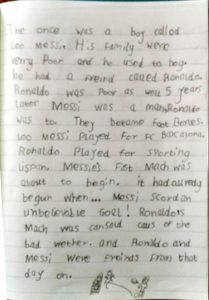 The once was a boy called
Leo Messi. His family were
very Poor and he used to beg.
he had a freind called Ronaldo.
Ronaldo was Poor as well 5 years
later Messi was a man, Ronaldo
was to. They became foot
Leo Messi Played for FC Barcalona.
Ronaldo Played for SPorting
Lisban. Messie's Fist Mach was
about to begin. it had already
begun when... Messi Scord an
unbelievable Goal! Ronaldo's
Mach was cansald caus of the
bad wether. and Ronaldo and
Messi were freinds from that
day on.